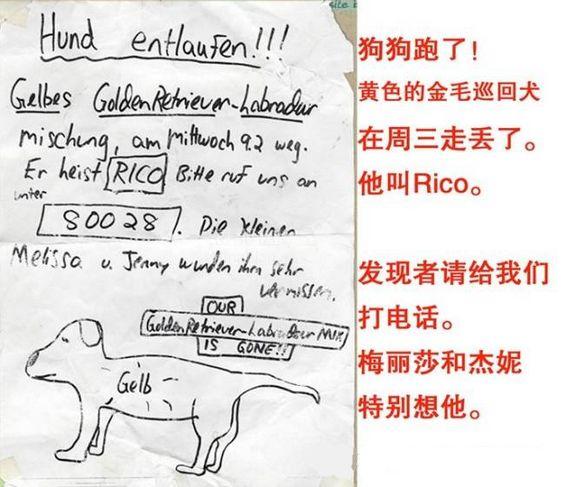 Hund entlaufen!!!
Gelbes Golden Retriever-Labradur
mischung, am Mittwoch 9.2 weg.
Er heist RICO Bitte ruf uns an
unter
80028. Die kleinen
Melissa u. Jenny wurden ihn sehr
vermissen.
OUR
Golden Retriever-Labradur MIX
IS GONE!!
Gelb
狗狗跑了!
黄色的金毛巡回犬
在周三走丢了。
他叫Rico。
发现者请给我们
打电话。
梅丽莎和杰妮
特别想他。